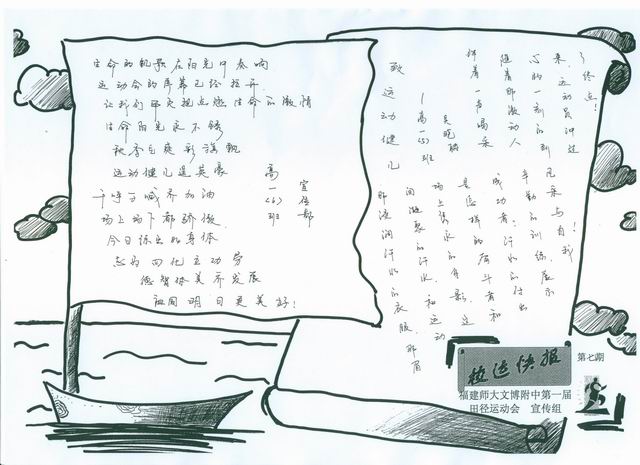 生命的凯歌在阳光中奏响
运动会的屏幕已经拉开
让我们用灵魂点燃生命的激情
生命阳光永不锈
秋季乞爽彩旗飘
运动健儿逞英豪
千呼万喊齐加油
场上场下都骄傲
今日练出好身体
志为四化立功劳
德智体美齐发展
祖国明日更美好！
宣传部
高一(6)班
致运动健儿
高一(5)班
伴着一声喝采
随着那激动人
心的一刻的到
来，运动员冲过
了终点！
风采与自我
辛勤的训练，展示
成功者；汗水的付出
是怎样的奋斗者和
场上隽永的身影，这
间凝聚的汗水，和运动
那浸润汗水的衣服，那眉
校运快报
第七期
福建师大文博附中第一届
田径运动会 宣传组